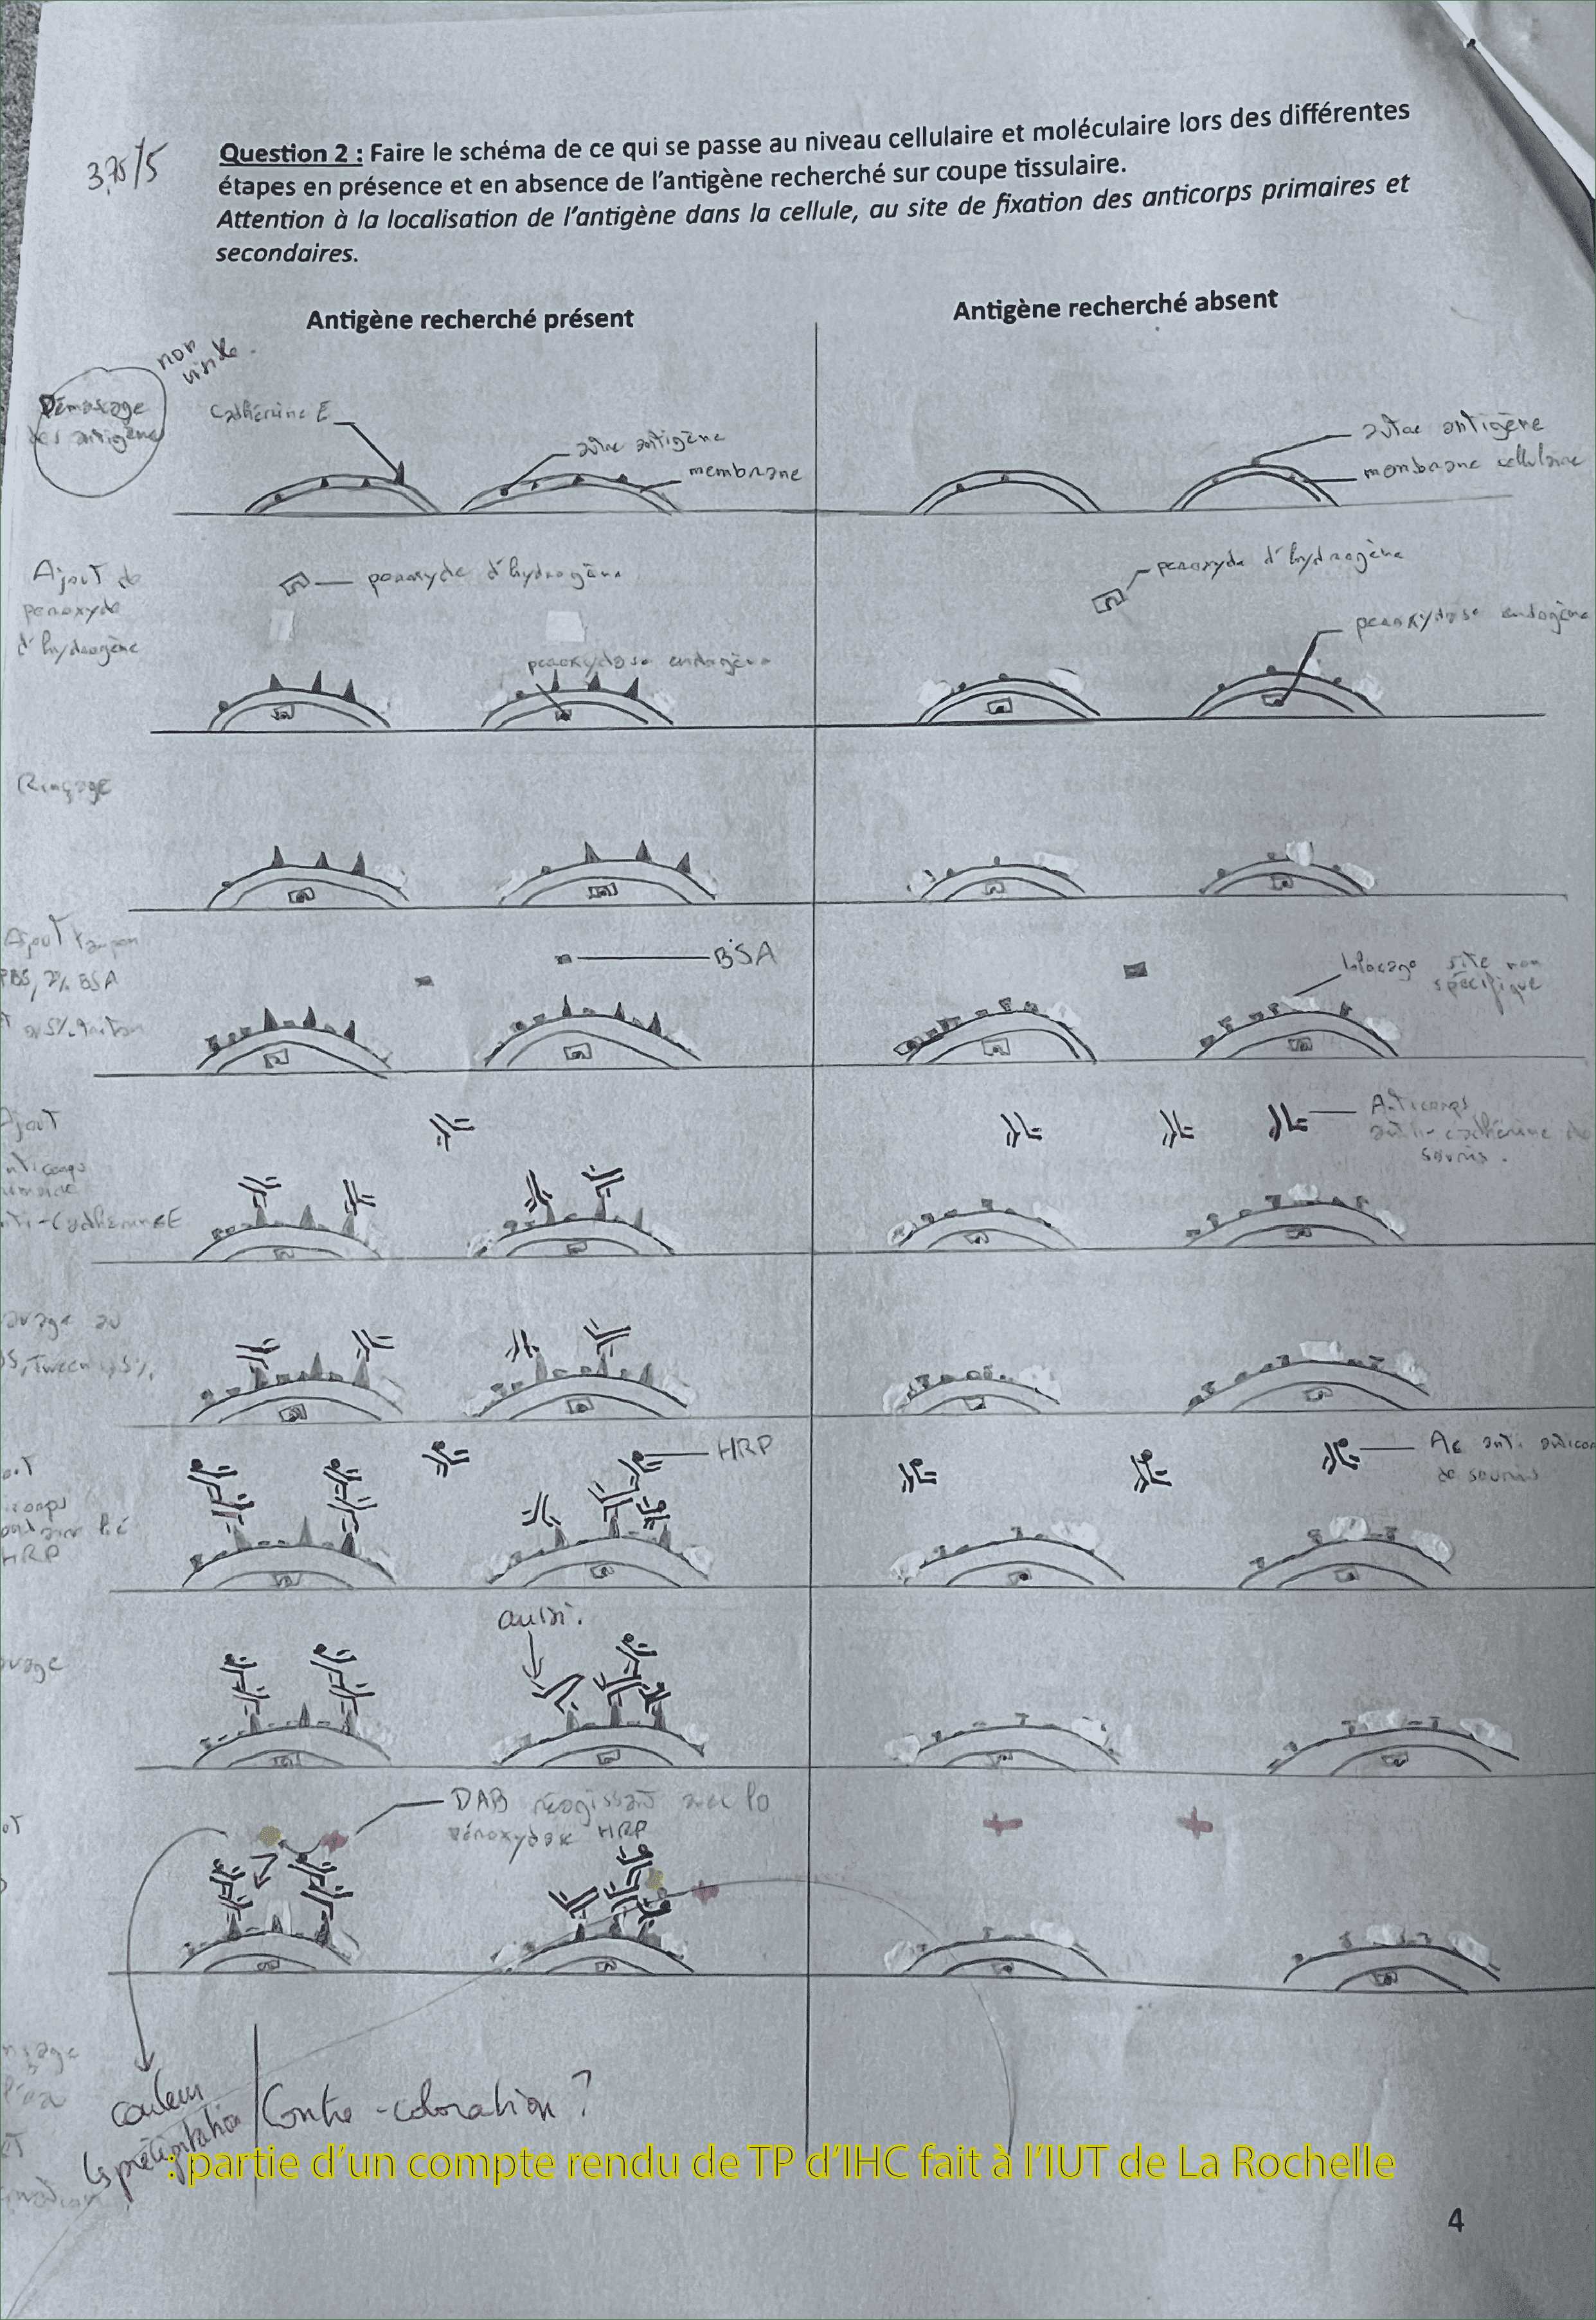 3,75/5
Question 2 : Faire le schéma de ce qui se passe au niveau cellulaire et moléculaire lors des différentes
étapes en présence et en absence de l'antigène recherché sur coupe tissulaire.
Attention à la localisation de l'antigène dans la cellule, au site de fixation des anticorps primaires et
secondaires.
Antigène recherché présent
Antigène recherché absent
non
visible.
Démascage
des antigène
Cadhérine E
autre antigène
membrane
autre antigène
membrane cellulaire
Ajout de
peroxyde
d'hydrogène
peroxyde d'hydrogène
peroxydase endogène
peroxyde d'hydrogène
peroxydase endogène
Rinçage
Ajout tampon
PBS, 2% BSA
BSA
blocage site non
spécifique
Ajout
anti-Cadhérine E
Anticorps
anti-cadhérine de
souris.
Tween
HRP
HRP
Ac anti
de souris
aussi.
DAB réagissant avec la
péroxydase HRP
couleur
précipitation
Contre-coloration ?
: partie d'un compte rendu de TP d'IHC fait à l'IUT de La Rochelle
4